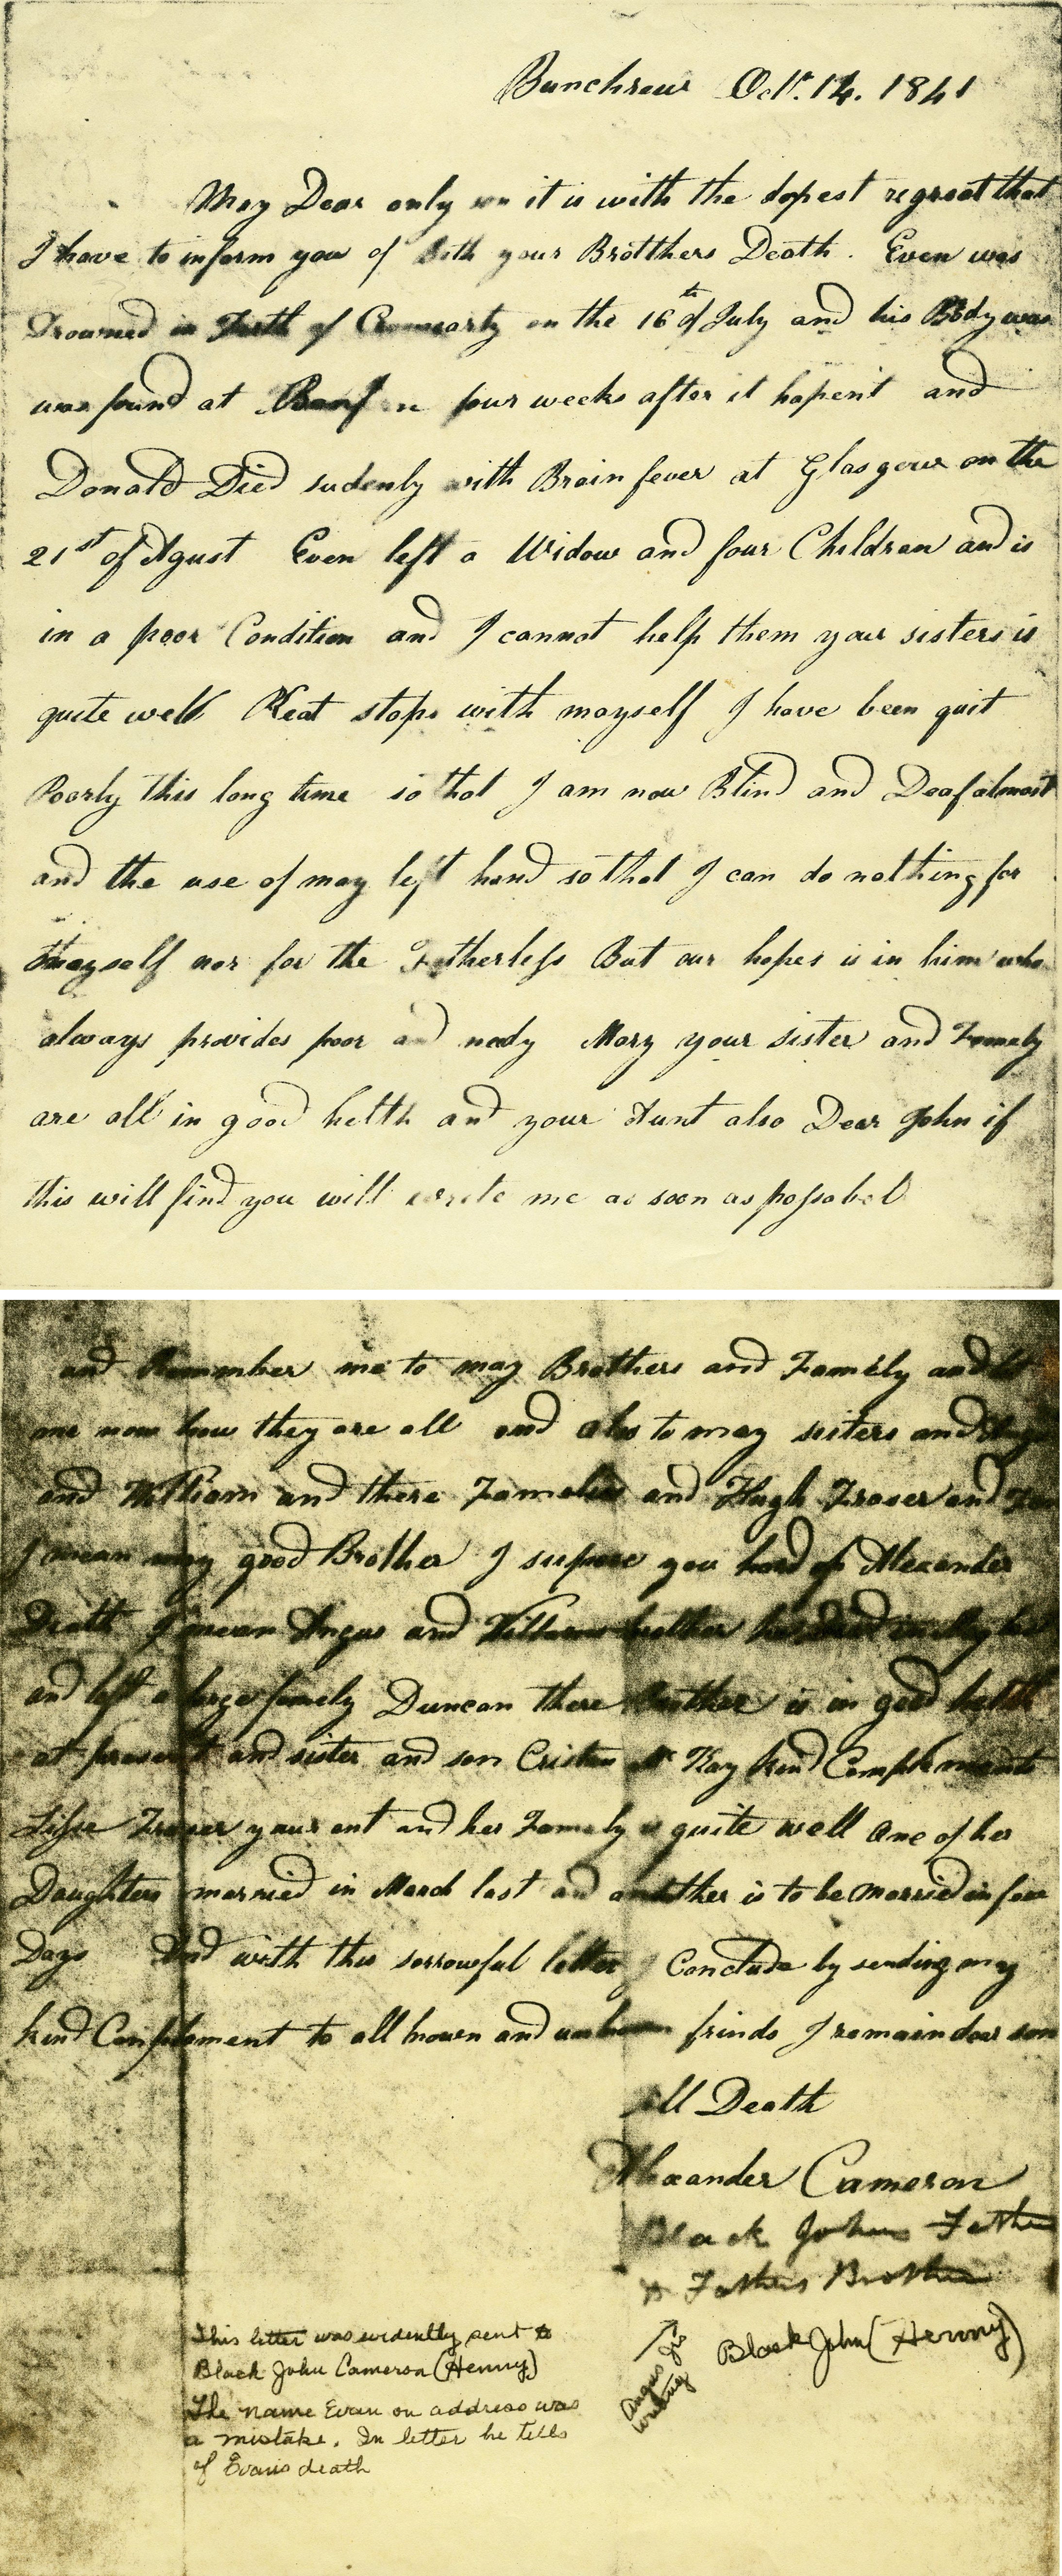 Bunchrew Octr. 14. 1841
May Dear only son it is with the dopest regreat that
I have to inform you of both your Brotthers Death. Even was
Drowned in Firth of Cromearty on the 16th of July and his Body was
was found at four weeks after it hapent and
Donald Died sudenly with Brain fever at Glasgow on the
21st of Agust Even left a Widow and four Children and is
in a poor Condition and I cannot help them your sisters is
quite well Keat stops with mayself I have been quit
Poorly this long time so that I am now Blind and Deaf almost
and the use of may left hand so that I can do nothing for
mayself nor for the Fatherless But our hopes is in him who
always provides poor and nedy Mary your sister and Famely
are all in good helth and your Aunt also Dear John if
this will find you will wrete me as soon as possabel
and Remember me to may Brothers and Famely and let
me now how they are all and also to may sisters and
and William and there Famelies and Hugh Fraser and
I mean may good Brother I supose you hard of Alexander
Death I mean Angus and Williams brother he
and left a large famely Duncan there brother is in good helth
at present and sister and son Cristen Mc Kay kind Complements
Lisse Fraser your ent and her Famely is quite well One of her
Daughters married in March last and another is to be Married in few
Days And with this sorrowful letter I Conclude by sending my
kind Complement to all known and unknown frinds I remain dear son
till Death
Alexander Cameron
Black Johns Father
Fathers Brother
Black John (Henny)
Angus
writing
This letter was evidently sent to
Black John Cameron (Henny)
The name Evan on address was
a mistake. In letter he tells
of Evans death